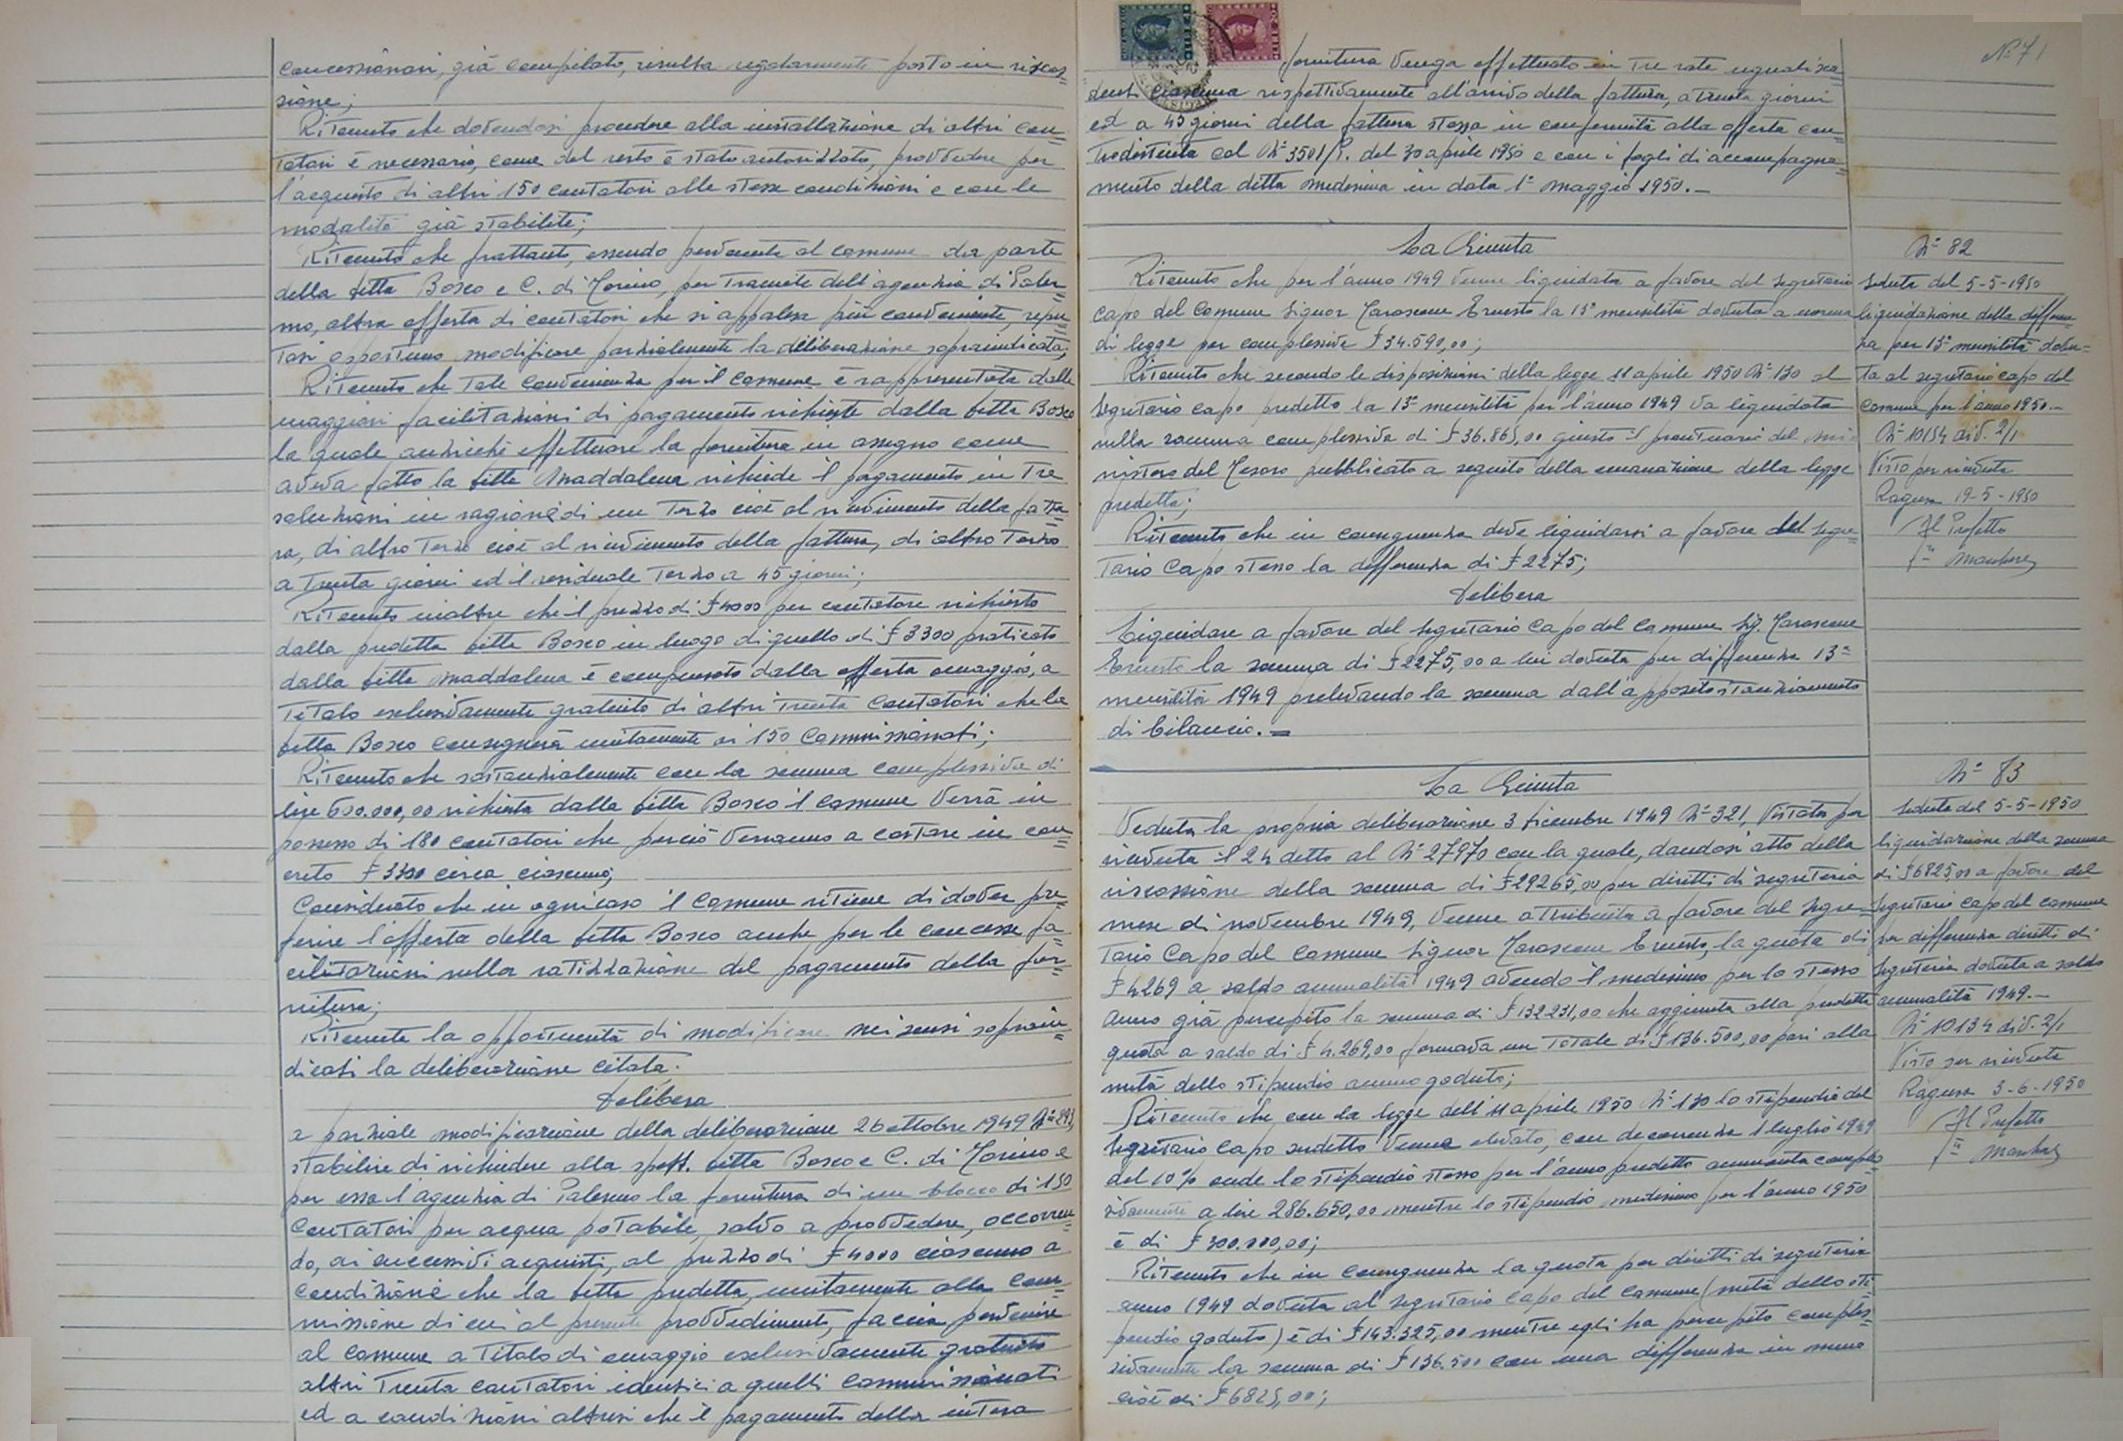 concessionari, già compilato, risulta regolarmente posto in riscos=
sione;
Ritenuto che dovendosi procedere alla installazione di altri con=
tatori è necessario, come del resto è stato autorizzato, provvedere per
l'acquisto di altri 150 contatori alle stesse condizioni e con le
modalità già stabilite;
Ritenuto che frattanto, essendo pervenuta al comune da parte
della Ditta Bosco e C. di Torino, per tramite dell'agenzia di Paler=
mo, altra offerta di contatori che si appalesa più conveniente, repu=
tasi opportuno modificare parzialmente la deliberazione sopraindicata;
Ritenuto che tale convenienza per il comune è rappresentata dalle
maggiori facilitazioni di pagamento richieste dalla Ditta Bosco
la quale anzichè effettuare la fornitura in assegno come
aveva fatto la Ditta Maddalena richiede il pagamento in tre
soluzioni in ragione di un terzo cioè al ricevimento della fattu=
ra, di altro terzo cioè al ricevimento della fattura, di altro terzo
a trenta giorni ed il residuale terzo a 45 giorni;
Ritenuto inoltre che il prezzo di £ 4000 per contatore richiesto
dalla predetta Ditta Bosco in luogo di quello di £ 3300 praticato
dalla Ditta Maddalena è compensato dalla offerta omaggio, a
titolo esclusivamente gratuito di altri trenta contatori che la
Ditta Bosco consegnerà unitamente ai 150 commissionati;
Ritenuto che sostanzialmente con la somma complessiva di
lire 600.000,00 richiesta dalla Ditta Bosco il comune verrà in
possesso di 180 contatori che perciò verranno a costare in con=
creto £ 3300 circa ciascuno;
Considerato che in ogni caso il comune ritiene di dover pre=
ferire l'offerta della Ditta Bosco anche per le concesse fa=
cilitazioni nella ratizzazione del pagamento della for=
nitura;
Ritenuta la opportunità di modificare nei sensi soprain=
dicati la deliberazione citata.
Delibera
a parziale modificazione della deliberazione 26 ottobre 1949 N°
stabilire di richiedere alla spett. Ditta Bosco e C. di Torino e
per essa l'agenzia di Palermo la fornitura di un blocco di 150
contatori per acqua potabile, salvo a provvedere, occorren=
do, ai successivi acquisti, al prezzo di £ 4000 ciascuno a
condizione che la Ditta predetta, unitamente alla com=
missione di cui al presente provvedimento, faccia pervenire
al comune a titolo di omaggio esclusivamente gratuito
altri trenta contatori identici a quelli commissionati
ed a condizioni altresi che il pagamento della intera
N° 71
fornitura venga effettuato in tre rate uguali sca=
denti ciascuna rispettivamente all'arrivo della fattura, a trenta giorni
ed a 45 giorni della fattura stessa in conformità alla offerta con=
traddistinta col N° 3501/P. del 30 aprile 1950 e con i fogli di accompagna=
mento della ditta medesima in data 1° maggio 1950.-
La Giunta
Ritenuto che per l'anno 1949 venne liquidata a favore del segretario
capo del comune signor Tarascone Ernesto la 13ª mensilità dovuta a norma
di legge per complessive £ 34.590,00;
Ritenuto che secondo le disposizioni della legge 11 aprile 1950 N° 130 al
segretario capo predetto la 13ª mensilità per l'anno 1949 va liquidata
nella somma complessiva di £ 36.865,00 giusto il prontuario del mi=
nistero del Tesoro pubblicato a seguito della emanazione della legge
predetta;
Ritenuto che in conseguenza deve liquidarsi a favore del segre=
tario capo stesso la differenza di £ 2275;
Delibera
Liquidare a favore del segretario capo del comune sig. Tarascone
Ernesto la somma di £ 2275,00 a lui dovuta per differenza 13ª
mensilità 1949 prelevando la somma dall'apposito stanziamento
di bilancio.-
N° 82
Seduta del 5-5-1950
liquidazione della differen=
za per 13ª mensilità dovu=
ta al segretario capo del
comune per l'anno 1950.-
N° 10154 div. 2/1
Visto per ricevuta
Ragusa 19-5-1950
Il Prefetto
La Giunta
Veduta la propria deliberazione 3 dicembre 1949 N° 321, vistata per
ricevuta il 24 detto al N° 27970 con la quale, dandosi atto della
riscossione della somma di £ 29265,00 per diritti di segreteria
mese di novembre 1949, venne attribuita a favore del segre=
tario capo del comune signor Tarascone Ernesto, la quota di
£ 4269 a saldo annualità 1949 avendo il medesimo per lo stesso
anno già percepito la somma di £ 132.231,00 che aggiunta alla predetta
quota a saldo di £ 4.269,00 formava un totale di £ 136.500,00 pari alla
metà dello stipendio annuo goduto;
Ritenuto che con la legge dell'11 aprile 1950 N° 130 lo stipendio del
segretario capo sudetto venne elevato, con decorrenza 1 luglio 1949
del 10% onde lo stipendio stesso per l'anno predetto ammonta comples=
sivamente a lire 286.650,00 mentre lo stipendio medesimo per l'anno 1950
è di £ 300.000,00;
Ritenuto che in conseguenza la quota per diritti di segreteria
anno 1949 dovuta al segretario capo del comune (metà dello sti=
pendio goduto) è di £ 143.325,00 mentre egli ha percepito comples=
sivamente la somma di £ 136.500 con una differenza in meno
cioè di £ 6825,00;
N° 83
Seduta del 5-5-1950
liquidazione della somma
di £ 6825,00 a favore del
segretario capo del comune
per differenza diritti di
segreteria dovuta a saldo
annualità 1949.-
N° 10134 div. 2/1
Visto per ricevuta
Ragusa 3-6-1950
Il Prefetto